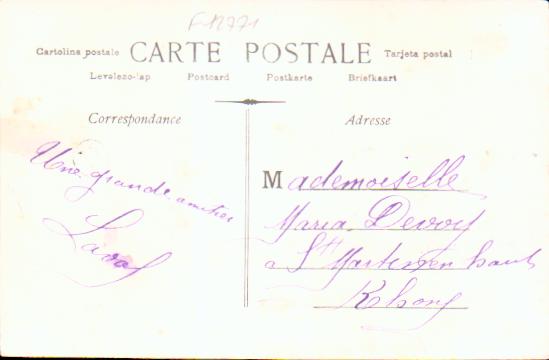 F-12771
CARTE POSTALE
Cartolina postale
Tarjeta postal
Levelezo-lap Postcard Postkarte Briefkaart
Correspondance
Une grande amitié
Adresse
Mademoiselle
Maria Devoy
a St Martin en haut
Rhone